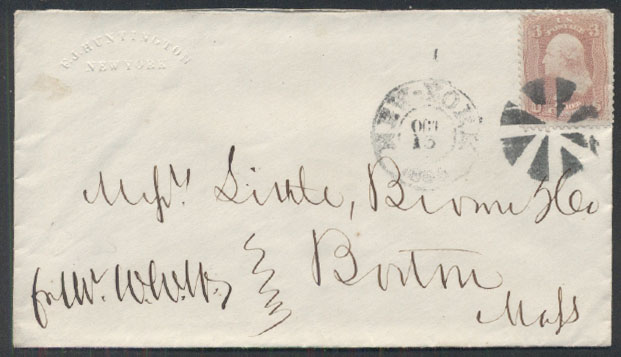 F.J. HUNTINGTON
NEW YORK
U.S. POSTAGE
3 3
NEW-YORK
OCT
15
Messrs. Little, Brown & Co
Boston
Mass
for Mr.